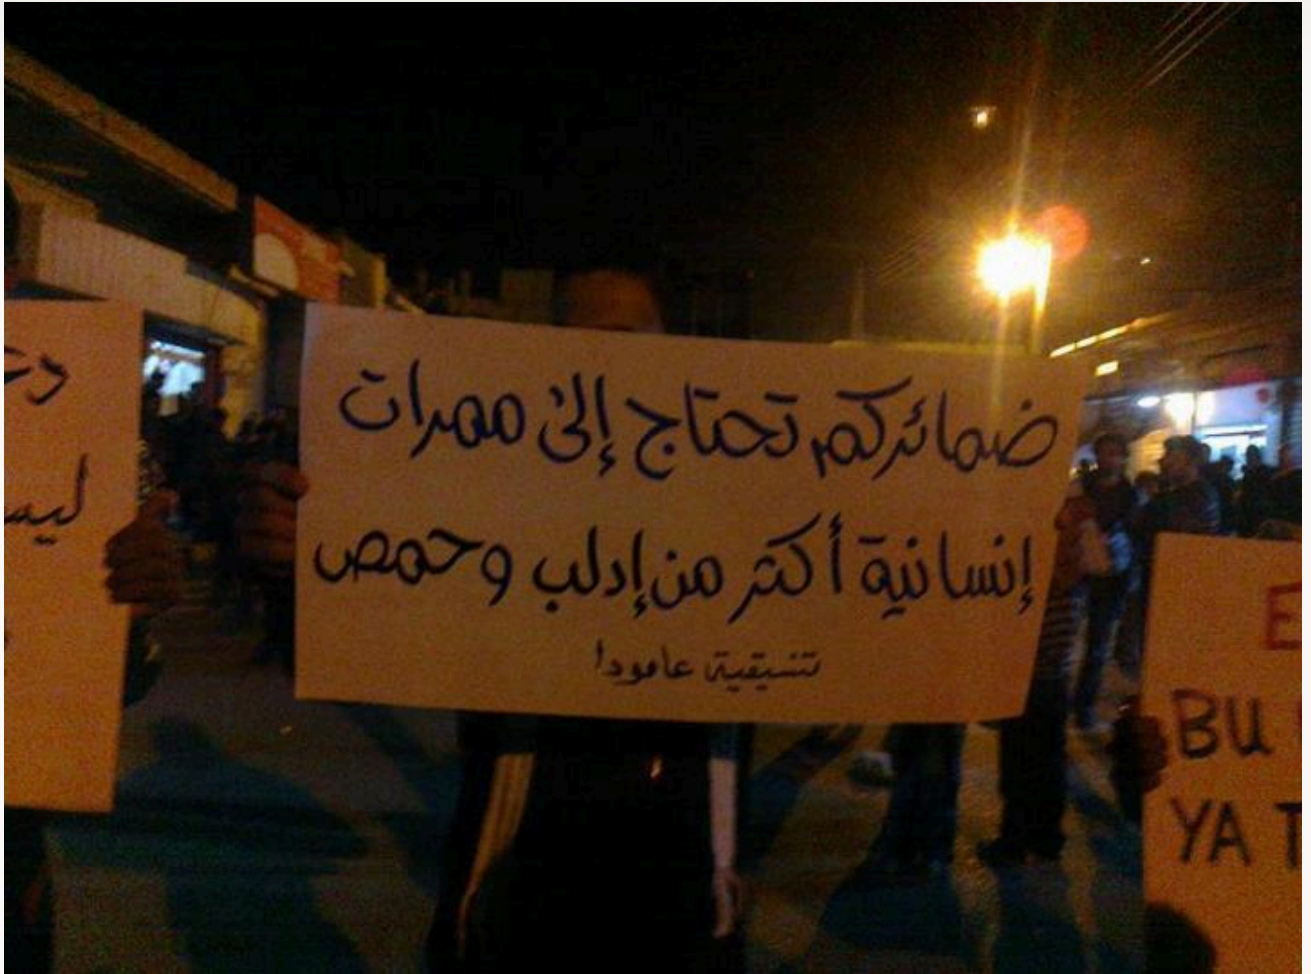 ضمائركم تحتاج إلى ممرات
إنسانية أكثر من إدلب وحمص
تنسيقية عامودا
BU
YA